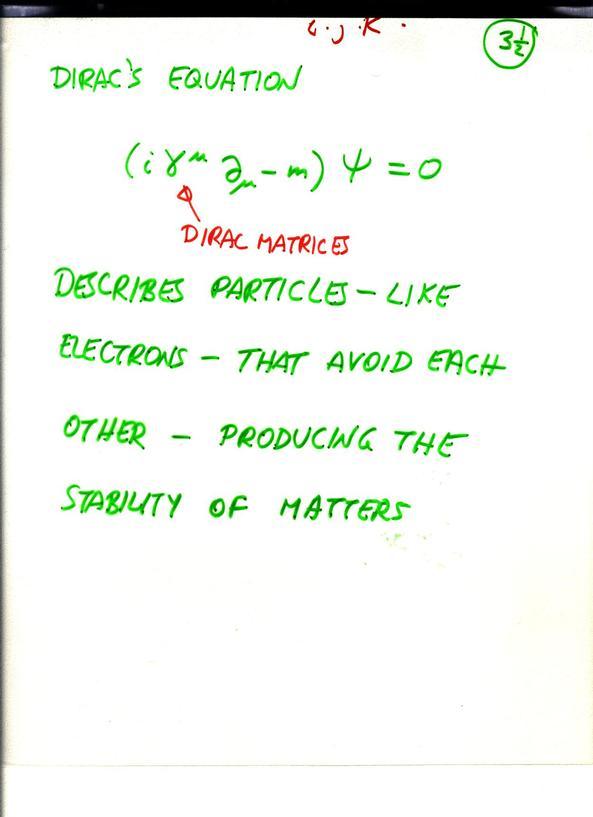 i.j.k.
3½
DIRAC'S EQUATION
(i γ^μ ∂_μ - m) ψ = 0
DIRAC MATRICES
DESCRIBES PARTICLES - LIKE
ELECTRONS - THAT AVOID EACH
OTHER - PRODUCING THE
STABILITY OF MATTERS